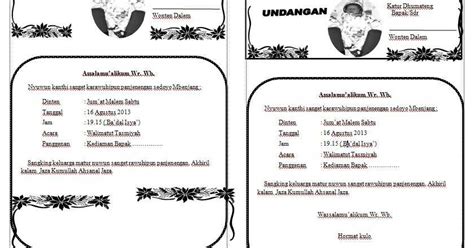 Wonten Dalem
Assalamu'alikum Wr. Wb.
Nyuwun kanthi sanget karawuhipun panjenengan sedoyo Mbenjang :
Dinten : Jum'at Malem Sabtu
Tanggal : 16 Agustus 2013
Jam : 19.15 (Ba'dal Isya')
Acara : Walimatut Tasmiyah
Panggenan : Kediaman Bapak
Sangking keluarga matur nuwun sanget rawuhipun panjenengan. Akhiril
kalam. Jaza Kumullah Ahsanal Jaza.
UNDANGAN
Katur Dhumateng
Bapak/Sdr
Wonten Dalem
Assalamu'alikum Wr. Wb.
Nyuwun kanthi sanget karawuhipun panjenengan sedoyo Mbenjang :
Dinten : Jum'at Malem Sabtu
Tanggal : 16 Agustus 2013
Jam : 19.15 (Ba'dal Isya')
Acara : Walimatut Tasmiyah
Panggenan : Kediaman Bapak
Sangking keluarga matur nuwun sanget rawuhipun panjenengan. Akhiril
kalam. Jaza Kumullah Ahsanal Jaza.
Wassalamu'alikum Wr. Wb.
Hormat kulo